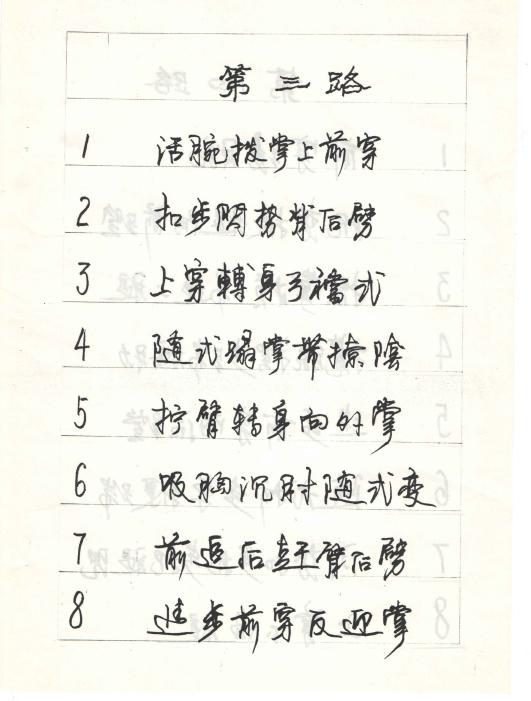 第三路
1 活腕拨掌上前穿
2 扣步閃势背后劈
3 上穿轉身弓襠式
4 随式蹋掌带撩陰
5 拧臂转身向外掌
6 吸胸沉肘随式变
7 前追后赶臂后劈
8 进步前穿反迎掌